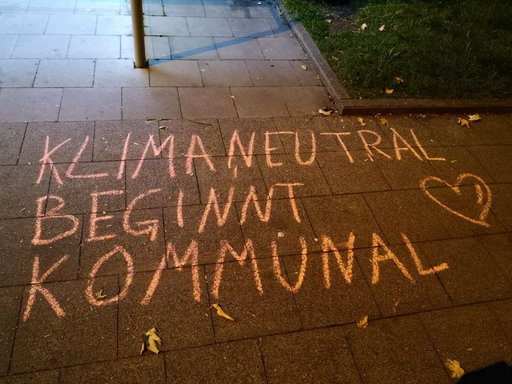 KLIMANEUTRAL
BEGINNT
KOMMUNAL